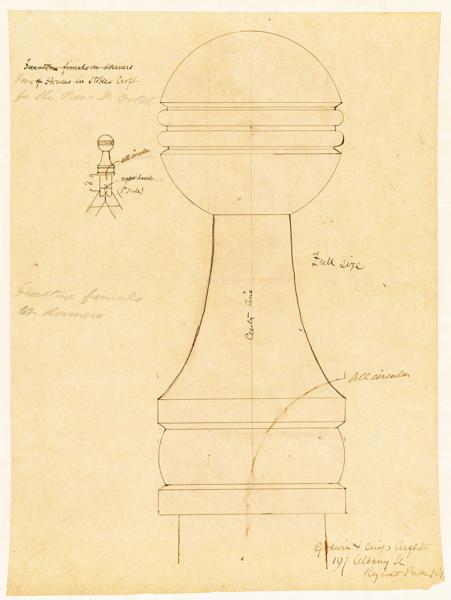 Freestone finials on dormers
Row of Houses in Stokes Croft
for the
all circular
copper dowel
(1" scale)
Full size
Centre line
Freestone finials
to dormers
all circular
Godwin & Crisp Archts
197 Albany St
Regents Park NW